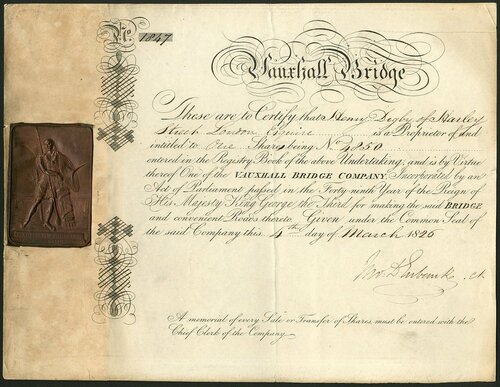 No. 1847
Vauxhall Bridge
These are to Certify that Henry Digby of Harley
Street London Esquire is a Proprietor of and
intitled to One Share being No. 4850
entered in the Registry Book of the above Undertaking, and is by Virtue
thereof One of the VAUXHALL BRIDGE COMPANY, Incorporated by an
Act of Parliament passed in the Forty-ninth Year of the Reign of
His Majesty King George the Third for making the said BRIDGE
and convenient Roads thereto. Given under the Common Seal of
the said Company this 4th day of March 1825
A memorial of every Sale or Transfer of Shares, must be entered with the
Chief Clerk of the Company